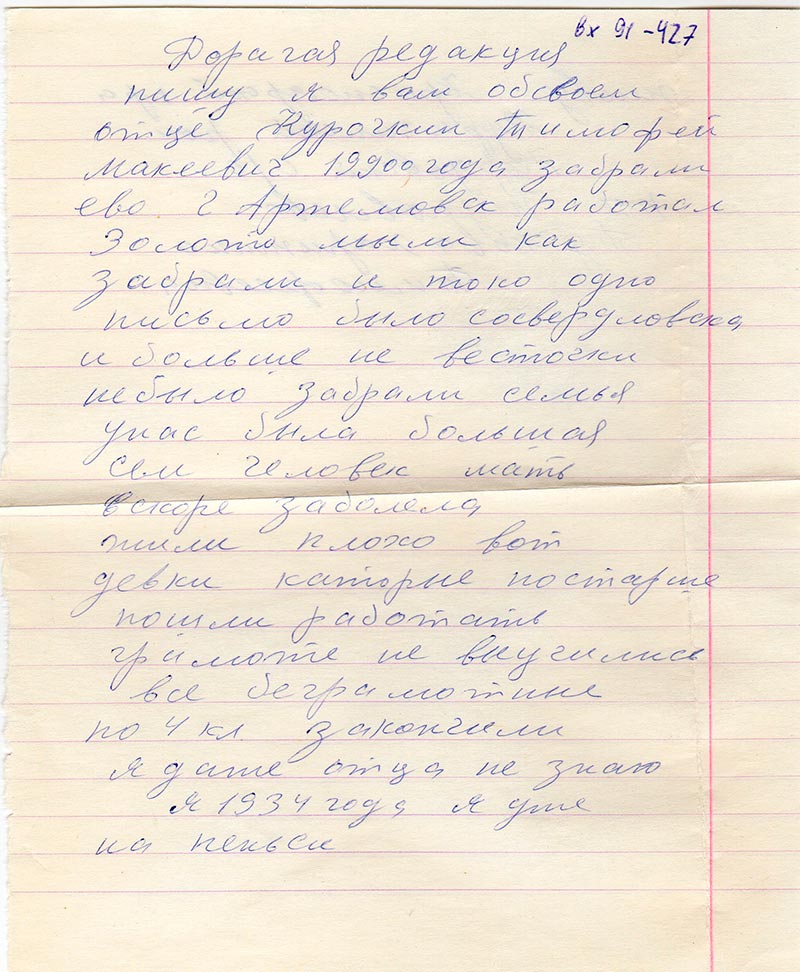 вх 91-427
Дорагая редакция
пишу я вам обсвоем
отце Курочкин Тимофей
Макеевич 19900 года забрали
ево г Артемовск работал
Золото мыли как
забрали и токо одно
письмо было сосвердловска
и больше не весточки
небыло забрали семья
унас была большая
сем человек мать
вскоре заболела
жили плохо вот
девки каторые постарше
пошли работать
грамоте не выучились
все беграмотные
по 4 кл. закончили
я даже отца не знаю
я 1934 года я уже
на пеньси